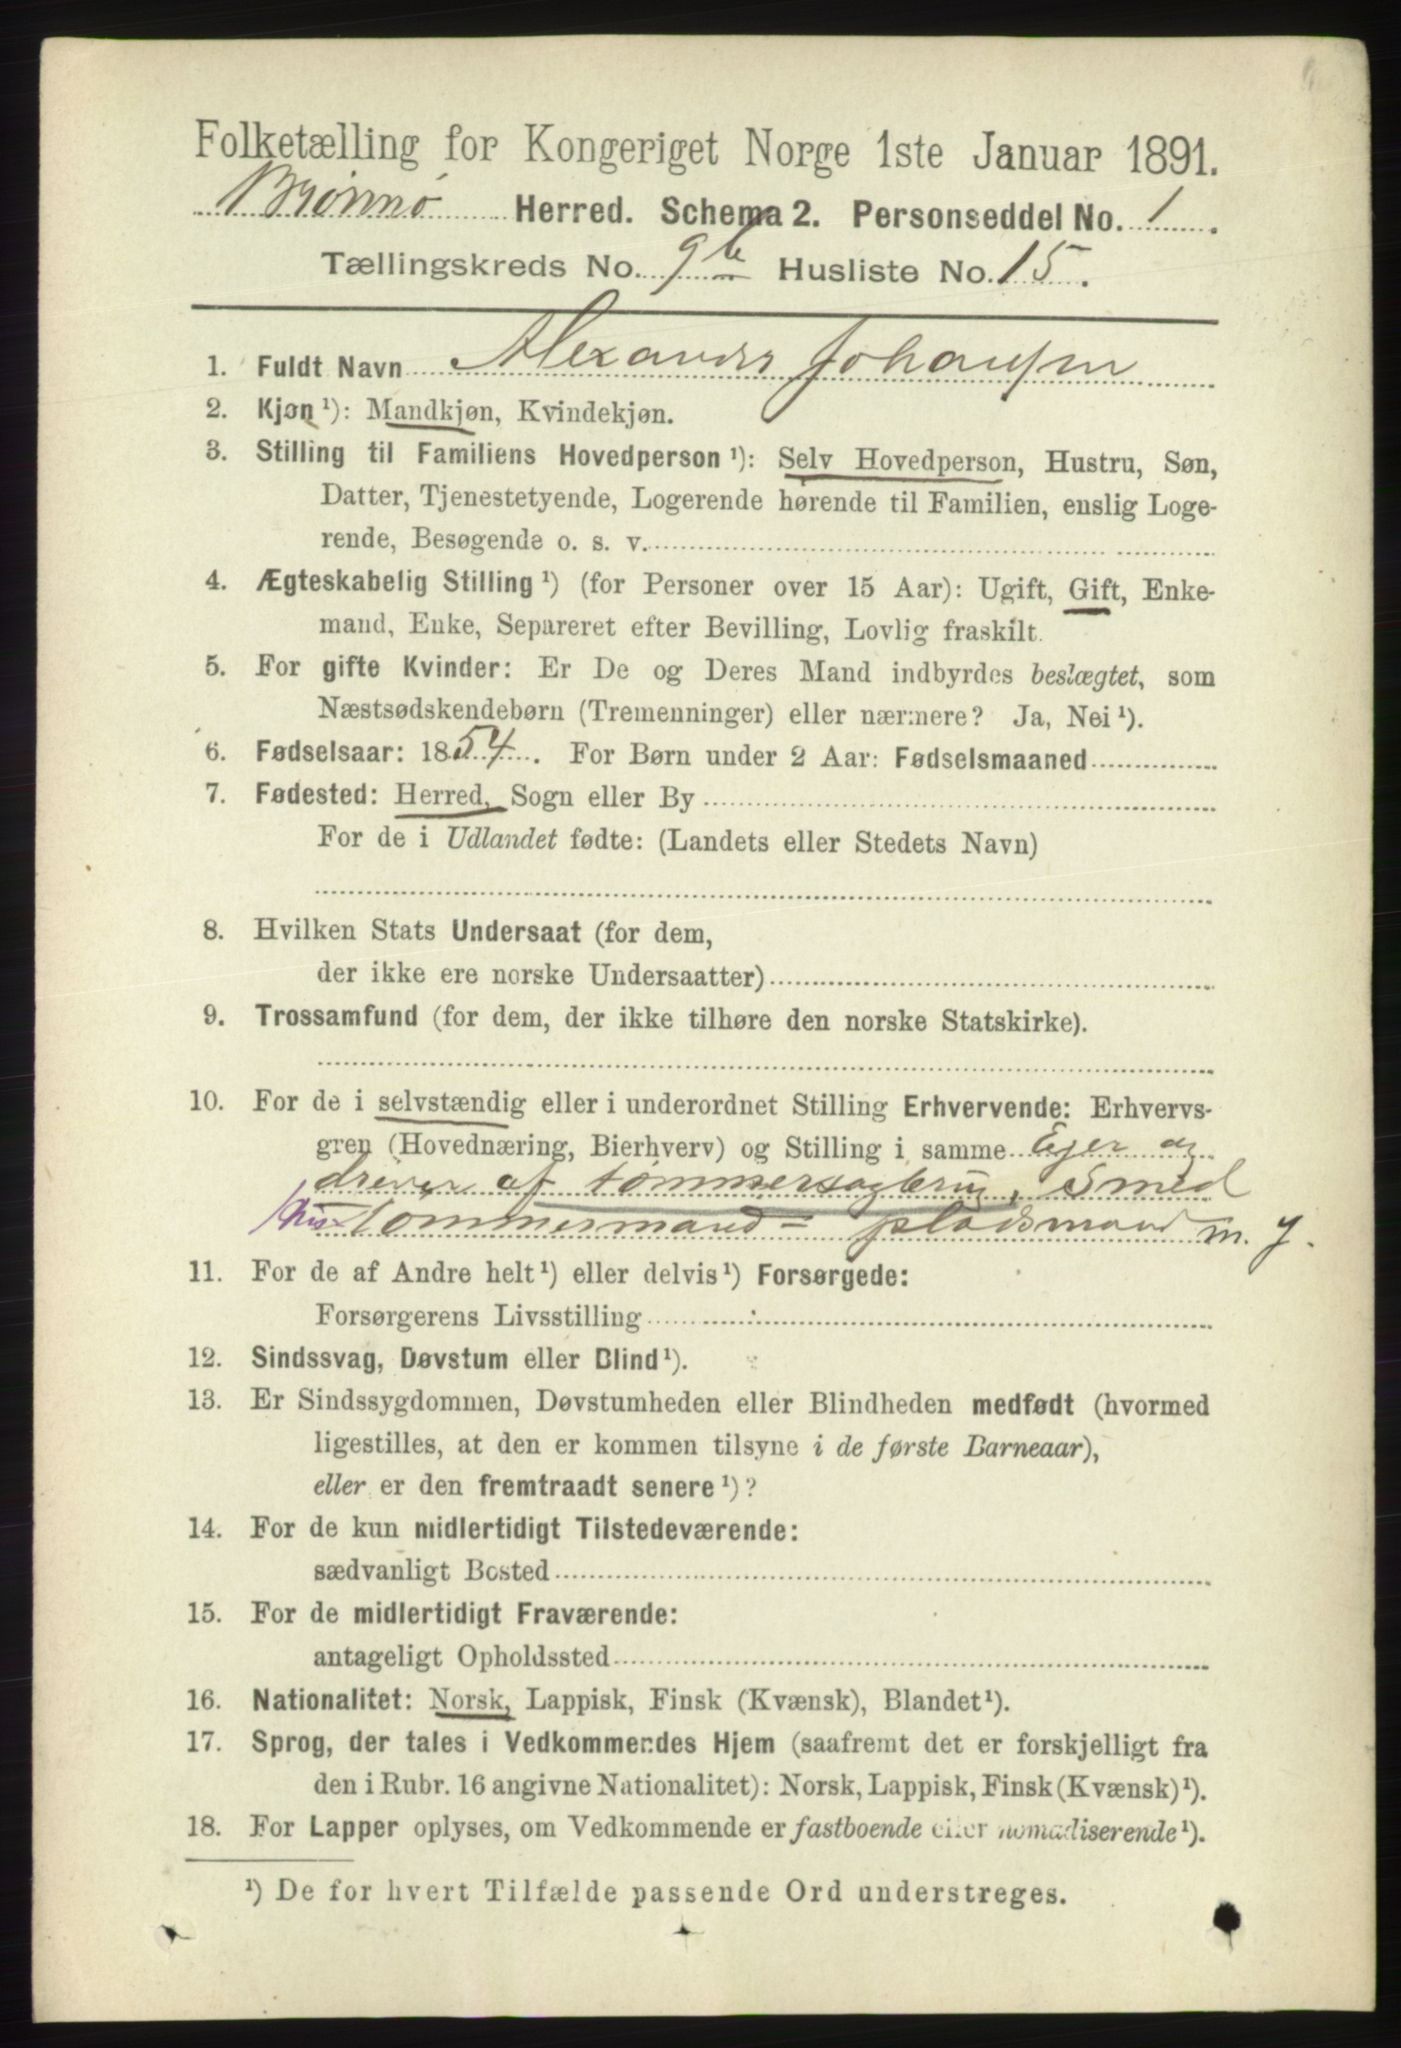 Folketælling for Kongeriget Norge 1ste Januar 1891.
Brønnø Herred. Schema 2. Personseddel No. 1.
Tællingskreds No. 9b Husliste No. 15.
1. Fuldt Navn Alexander Johansen
2. Kjøn ¹): Mandkjøn, Kvindekjøn.
3. Stilling til Familiens Hovedperson ¹): Selv Hovedperson, Hustru, Søn,
Datter, Tjenestetyende, Logerende hørende til Familien, enslig Loge-
rende, Besøgende o. s. v.
4. Ægteskabelig Stilling ¹) (for Personer over 15 Aar): Ugift, Gift, Enke-
mand, Enke, Separeret efter Bevilling, Lovlig fraskilt.
5. For gifte Kvinder: Er De og Deres Mand indbyrdes beslægtet, som
Næstsødskendebørn (Tremenninger) eller nærmere? Ja, Nei ¹).
6. Fødselsaar: 1854. For Børn under 2 Aar: Fødselsmaaned
7. Fødested: Herred, Sogn eller By
For de i Udlandet fødte: (Landets eller Stedets Navn)
8. Hvilken Stats Undersaat (for dem,
der ikke ere norske Undersaatter)
9. Trossamfund (for dem, der ikke tilhøre den norske Statskirke).
10. For de i selvstændig eller i underordnet Stilling Erhvervende: Erhvervs-
gren (Hovednæring, Bierhverv) og Stilling i samme Ejer og
driver af tømmersagbrug, Smed
Tømmermand - pladsmand m. j.
11. For de af Andre helt ¹) eller delvis ¹) Forsørgede:
Forsørgerens Livsstilling
12. Sindssvag, Døvstum eller Blind ¹).
13. Er Sindssygdommen, Døvstumheden eller Blindheden medfødt (hvormed
ligestilles, at den er kommen tilsyne i de første Barneaar),
eller er den fremtraadt senere ¹)?
14. For de kun midlertidigt Tilstedeværende:
sædvanligt Bosted
15. For de midlertidigt Fraværende:
antageligt Opholdssted
16. Nationalitet: Norsk, Lappisk, Finsk (Kvænsk), Blandet ¹).
17. Sprog, der tales i Vedkommendes Hjem (saafremt det er forskjelligt fra
den i Rubr. 16 angivne Nationalitet): Norsk, Lappisk, Finsk (Kvænsk) ¹).
18. For Lapper oplyses, om Vedkommende er fastboende eller nomadiserende ¹).
¹) De for hvert Tilfælde passende Ord understreges.